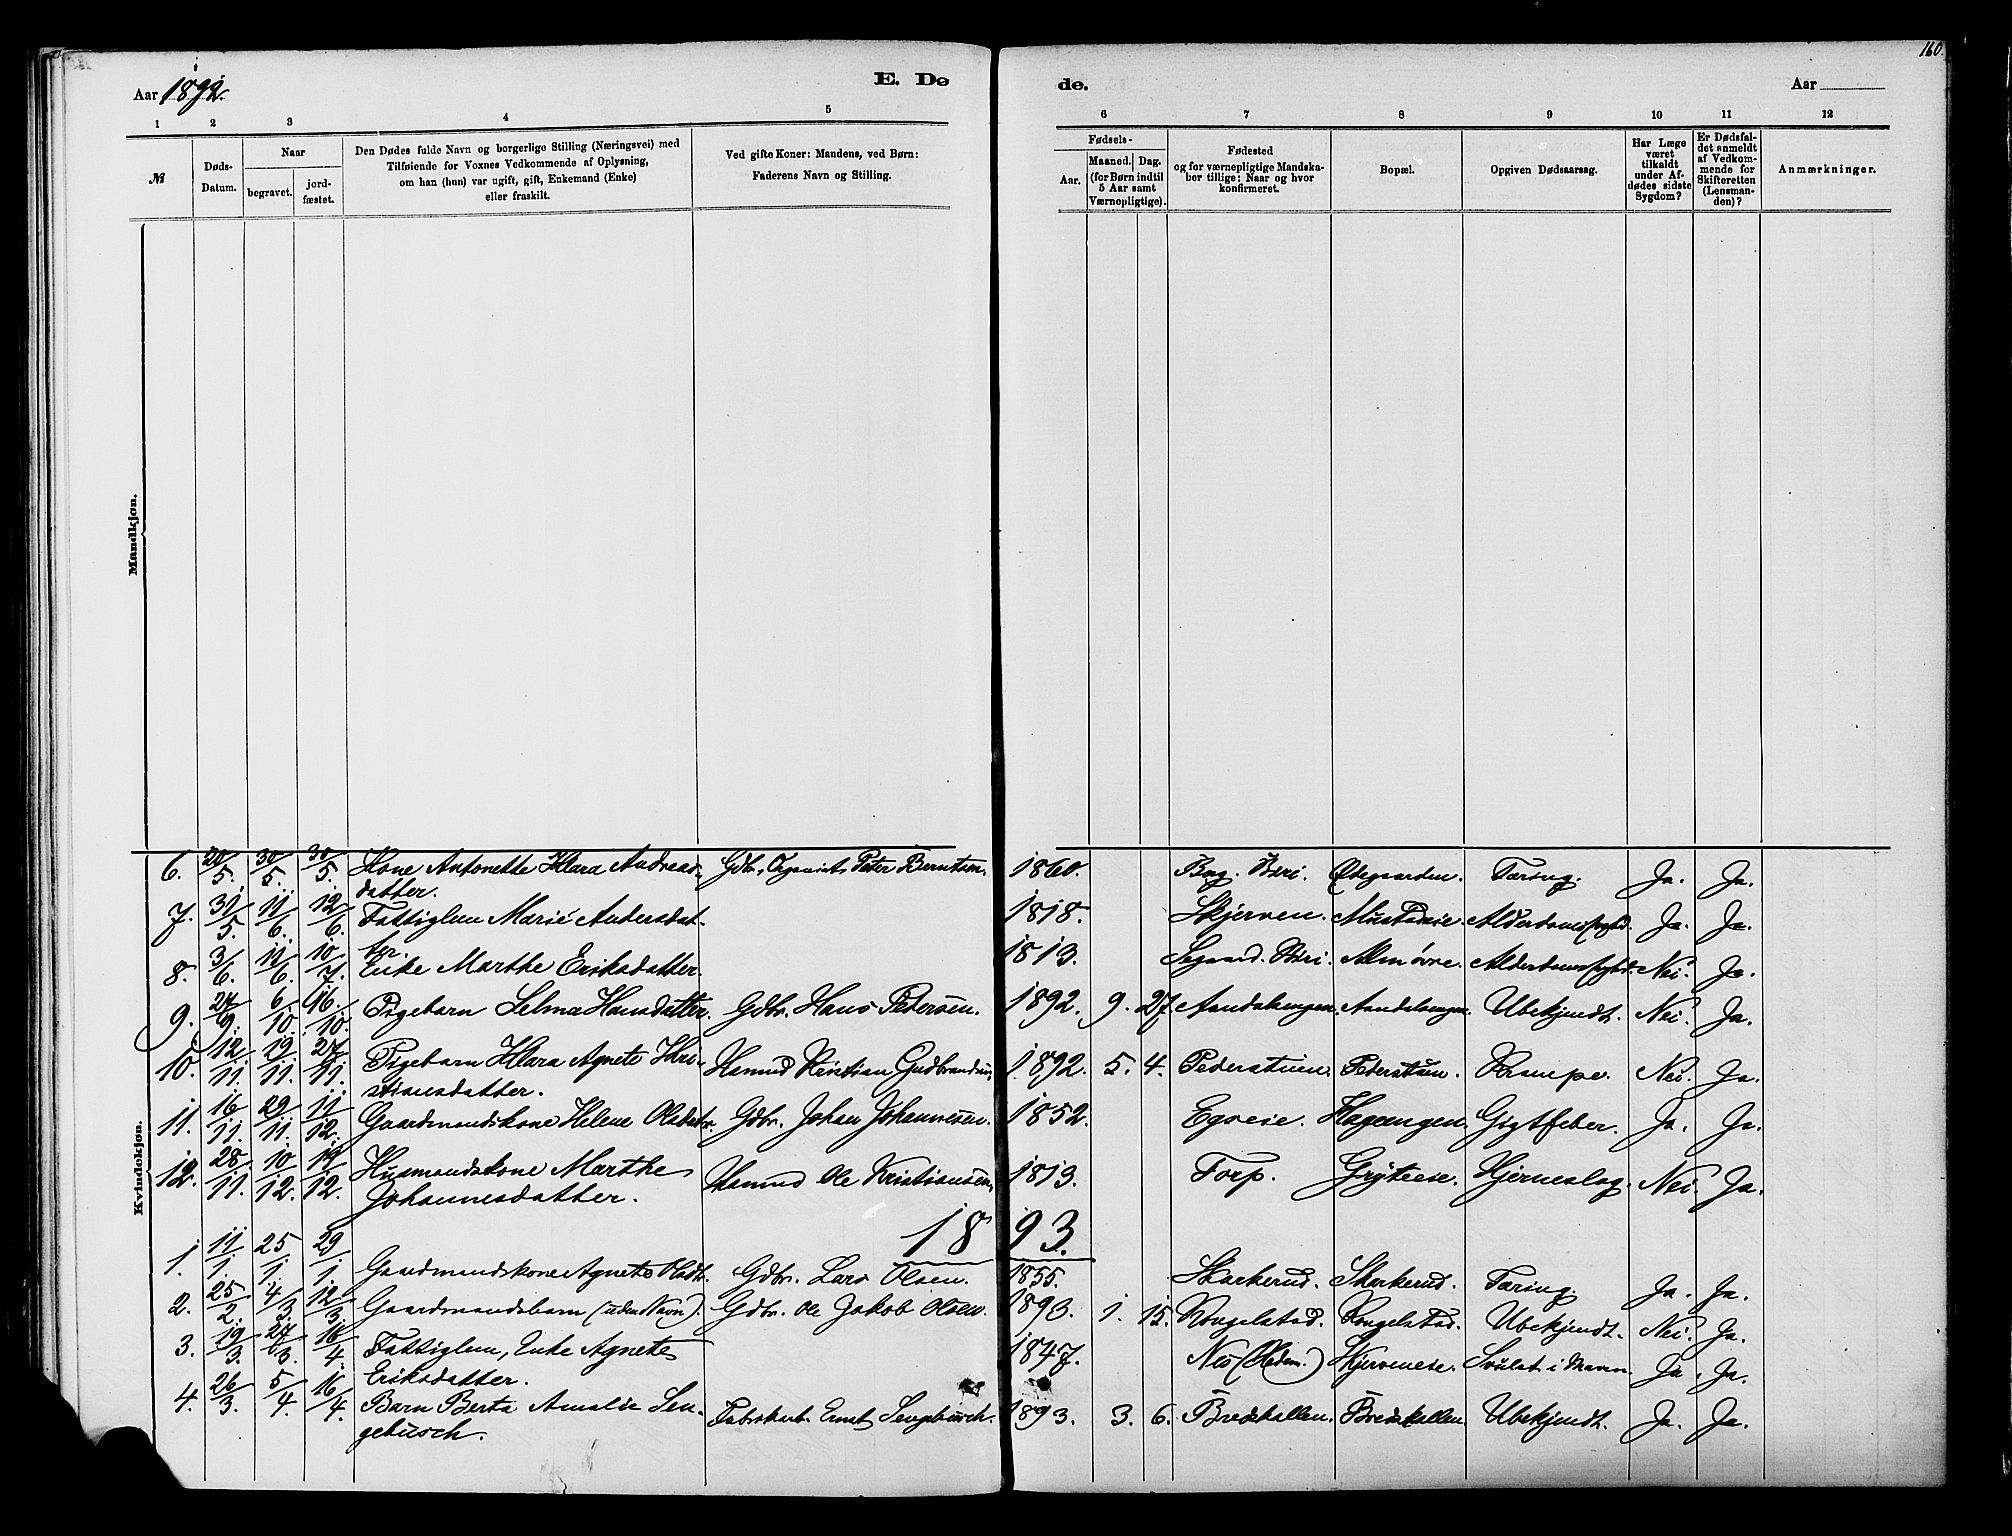 160.
Aar 1892.
E. Dø
de.
Aar
1 2 3 4 5 6 7 8 9 10 11 12
№
Døds-Datum.
Naar
begravet.
jord-fæstet.
Den Dødes fulde Navn og borgerlige Stilling (Næringsvei) med
Tilføiende for Voxnes Vedkommende af Oplysning,
om han (hun) var ugift, gift, Enkemand (Enke)
eller fraskilt.
Ved gifte Koner: Mandens, ved Børn:
Faderens Navn og Stilling.
Fødsels-
Aar.
Maaned. Dag.
(for Børn indtil
5 Aar samt
Værnepligtige).
Fødested
og for værnepligtige Mandska-
ber tillige: Naar og hvor
konfirmeret.
Bopæl.
Opgiven Dødsaarsag.
Har Læge
været
tilkaldt
under Af-
dødes sidste
Sygdom?
Er Dødsfal-
det anmeldt
af Vedkom-
mende for
Skifteretten
(Lensman-
den)?
Anmærkninger.
Mandkjøn.
Kvindekjøn.
6. 20/5. 30/5. 30/5. Kone Antonette Klara Andreas- Gdbr., Organist Peter Berntsen. 1860. Bag. Biri. Ødegaarden. Tæring. Ja. Ja.
datter.
7. 31/5. 11/6. 12/6. Fattiglem Marie Andersdat- 1818. Skjerven. Alderdomssvaghed. Ja. Ja.
ter.
8. 3/6. 11/6. 10/7. Enke Marthe Eriksdatter. 1813. Biri. Alderdomssvaghed. Nei. Ja.
9. 27/9. 6/10. 16/10. Pigebarn Selma Hansdatter. Gdbr. Hans Pedersen. 1892. 9. 27. Aandalsengen. Aandalsengen. Ubekjendt. Nei. Ja.
10. 12/11. 19/11. 27/11. Pigebarn Klara Agnete Kri- Husmd Kristian Gudbrandsen 1892. 5. 4. Pederstuen. Pederstuen. Krampe. Nei. Ja.
stiansdatter.
11. 16/11. 29/11. 11/12. Gaardmandskone Helene Olsdatr. Gdbr. Johan Johannesen. 1852. Egseie. Hageengen. Gigtfeber. Ja. Ja.
12. 28/11. 10/12. 19/12. Husmandskone Marthe Husmd Ole Kristiansen. 1813. Torp. Grÿteeie. Hjerneslag. Nei. Ja.
Johannesdatter.
1893.
1. 11/1. 25/1. 29/1. Gaardmandskone Agnete Olsdtr. Gdbr. Lars Olsen. 1855. Skarkerud. Skarkerud. Tæring. Ja. Ja.
2. 25/2. 4/3. 12/3. Gaardmandsbarn (uden Navn). Gdbr. Ole Jakob Olsen. 1893. 1. 15. Kongelstad. Kongelstad. Ubekjendt. Nei. Ja.
3. 19/3. 27/3. 16/4. Fattiglem, Enke Agnete 1847. Nes (Hedm.) Skjerveneie. Svulst i Maven Ja. Ja.
Eriksdatter.
4. 26/3. 5/4. 16/4. Barn Berta Amalie Sen- Fabrikarb. Ernst Sengebusch. 1893. 3. 6. Bredskallen. Bredskallen. Ubekjendt. Ja. Ja.
gebusch.